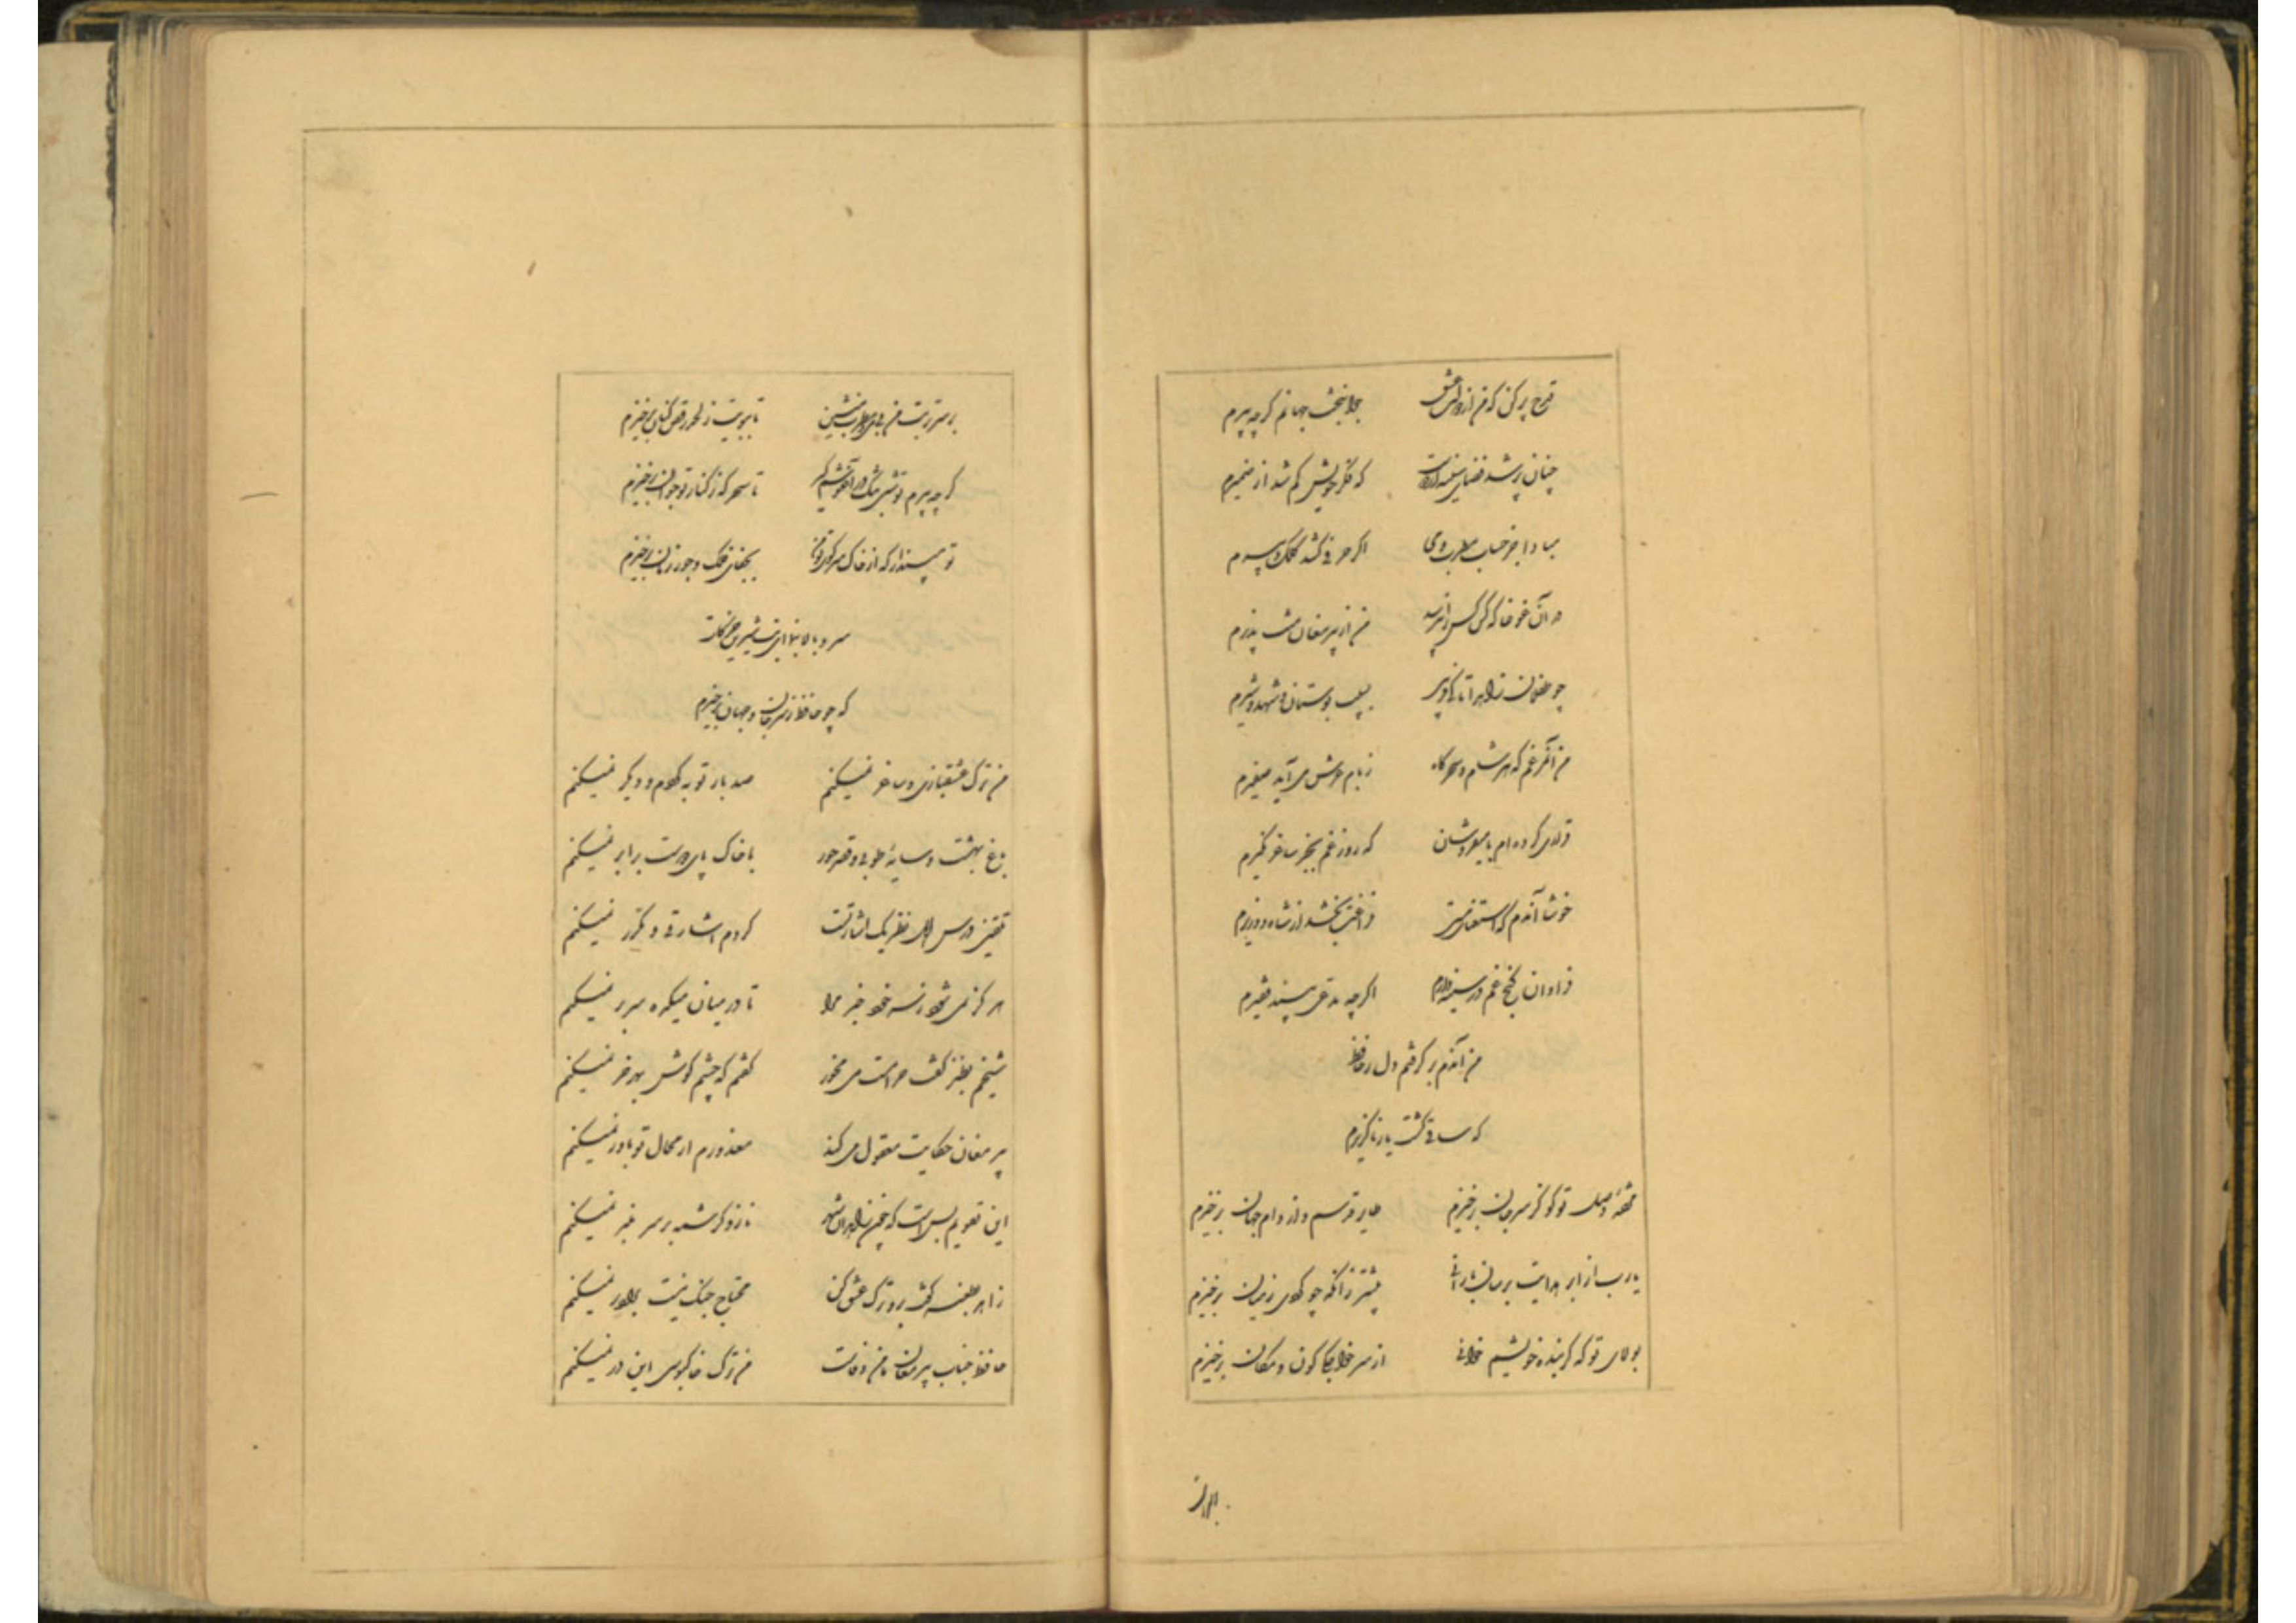 قدح پر کن که من از دولت عشق جوانبخت جهانم گرچه پیرم
چنان پر شد فضای سینه از دوست که فکر خویش گم شد از ضمیرم
مبادا جز حساب مطرب و می اگر حرفی کشد کلک دبیرم
در آن غوغا که کس کس را نپرسد من از پیر مغان منت پذیرم
چو طفلان زاهدا تا کی فریبی بسیب بوستان و شهد و شیرم
من آن مرغم که هر شام و سحرگاه ز بام عرش می آید صفیرم
قراری کرده ام با میفروشان که روز غم بجز ساغر نگیرم
خوشا آندم که استغنای مستی فراغت بخشد از شاه و وزیرم
فراوان گنج غم در سینه دارم اگرچه مدعی بیند فقیرم
من آندم بر گرفتم دل ز حافظ
که ساقی گشت یار ناگزیرم
مژدهٔ وصل تو کو کز سر جان برخیزم طایر قدسم و از دام جهان برخیزم
یارب از ابر هدایت برسان بارانی پیشتر زانکه چو گردی ز میان برخیزم
بولای تو که گر بنده خویشم خوانی از سر خواجگی کون و مکان برخیزم
بر سر تربت من با می و مطرب بنشین تا ببویت ز لحد رقص کنان برخیزم
گرچه پیرم تو شبی تنگ در آغوشم گیر تا سحرگه ز کنار تو جوان برخیزم
تو مپندار که از خاک سر کوی تو من بجفای فلک و جور زمان برخیزم
سرو بالا بنما ای بت شیرین حرکات
که چو حافظ ز سر جان و جهان برخیزم
من ترک عشقبازی و ساغر نمیکنم صد بار توبه کردم و دیگر نمیکنم
باغ بهشت و سایهٔ طوبی و قصر حور با خاک پای دوست برابر نمیکنم
تلقین درس اهل نظر یک اشارتست کردم اشارتی و مکرر نمیکنم
هرگز نمی شود ز سر خود خبر مرا تا در میان میکده سر بر نمیکنم
شیخم بطنز گفت حرامست می مخور گفتم که چشم گوش بهر خر نمیکنم
پیر مغان حکایت معقول می کند معذورم ار محال تو باور نمیکنم
این تقویم بس است که چون زاهدان شهر ناز و کرشمه بر سر منبر نمیکنم
زاهد بطعنه گفت برو ترک عشق کن محتاج جنگ نیست برادر نمیکنم
حافظ جناب پیر مغان مامن وفاست من ترک خاکبوسی این در نمیکنم